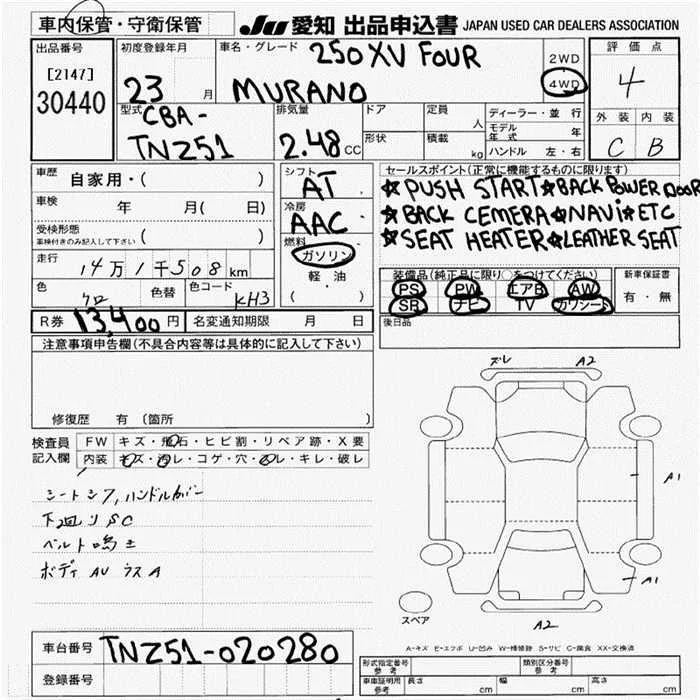 車内保管・守衛保管
JU 愛知 出品申込書 JAPAN USED CAR DEALERS ASSOCIATION
出品番号
[2147]
30440
初度登録年月
23 月
車名・グレード
250XV FOUR
MURANO
2WD
4WD
評価点
4
外装 内装
C B
型式
CBA-
TNZ51
排気量
2.48 CC
ドア
形状
定員
人
積載
kg
ディーラー・並行
モデル年式 年
ハンドル 左・右
車歴 自家用・( )
車検 年 月( 日)
受検形態
車検付きのみ記入して下さい ( )
走行 14万1千508km
色 クロ 色替 色コード KH3
R券 13,400円 名変通知期限 月 日
シフト
AT
冷房
AAC
燃料
ガソリン
軽・油
( )
セールスポイント(正常に機能するものに限ります)
☆PUSH START☆BACK POWER DOOR
☆BACK CEMERA☆NAVI☆ETC
☆SEAT HEATER☆LEATHER SEAT
装備品(純正品に限り○をつけてください)
PS PW エアB AW
SR ナビ TV カワシート
新車保証書
有・無
後日品
注意事項申告欄(不具合内容等は具体的に記入して下さい)
修復歴 有 〔箇所 〕
検査員記入欄
FW キズ・飛石・ヒビ割・リペア跡・X要
内装 キズ・汚レ・コゲ・穴・スレ・キレ・破レ
シートシワ,ハンドルカバー
下廻りSC
ベルト鳴き
ボディAUウスA
ズレ A2
A1
A1
A2
スペア
A-キズ E-エクボ U-凹み W-補修跡 S-サビ C-腐食 XX-交換済
車台番号 TNZ51-020280
登録番号
形式指定番号
参考
類別区分番号
参考
車庫証明用
参考
長さ cm 幅 cm 高さ cm